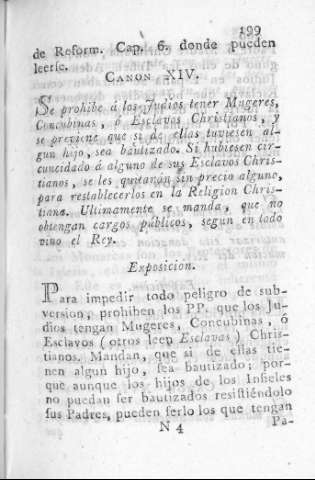 199
de Reform. Cap. 6. donde pueden
leerse.
CANON XIV.
Se prohibe á los Judios tener Mugeres,
Concubinas, ó Esclavos Christianos, y
se previene que si de ellas tuviesen al-
gun hijo, sea bautizado. Si hubiesen cir-
cuncidado á alguno de sus Esclavos Chris-
tianos, se les quitarán sin precio alguno,
para restablecerlos en la Religion Chris-
tiana. Ultimamente se manda, que no
obtengan cargos públicos, segun en todo
vino el Rey.
Exposicion.
Para impedir todo peligro de sub-
version, prohiben los PP. que los Ju-
dios tengan Mugeres, Concubinas, ó
Esclavos (otros leen Esclavas) Chris-
tianos. Mandan, que si de ellas tie-
nen algun hijo, sea bautizado; por-
que aunque los hijos de los Infieles
no puedan ser bautizados resistiéndolo
sus Padres, pueden serlo los que tengan
N 4 Pa-